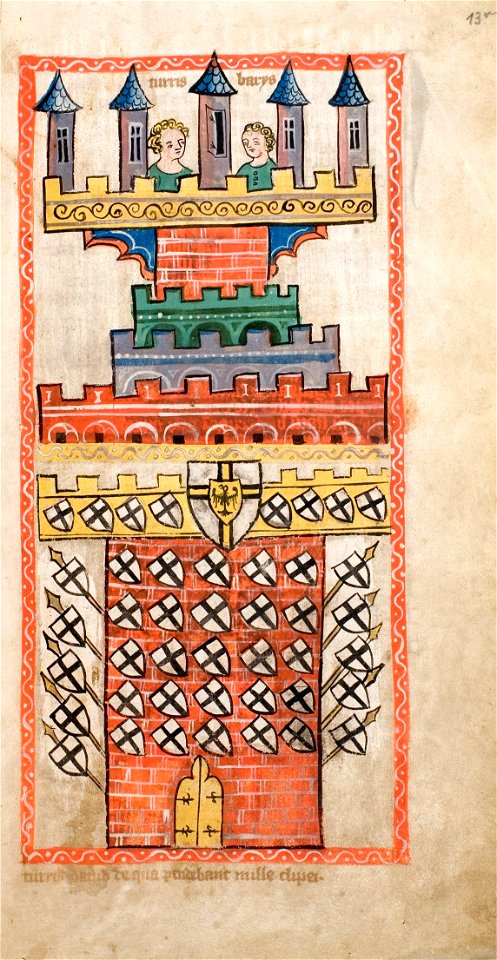 13r
turris barys
turris dauid de qua pendebant mille clipei.